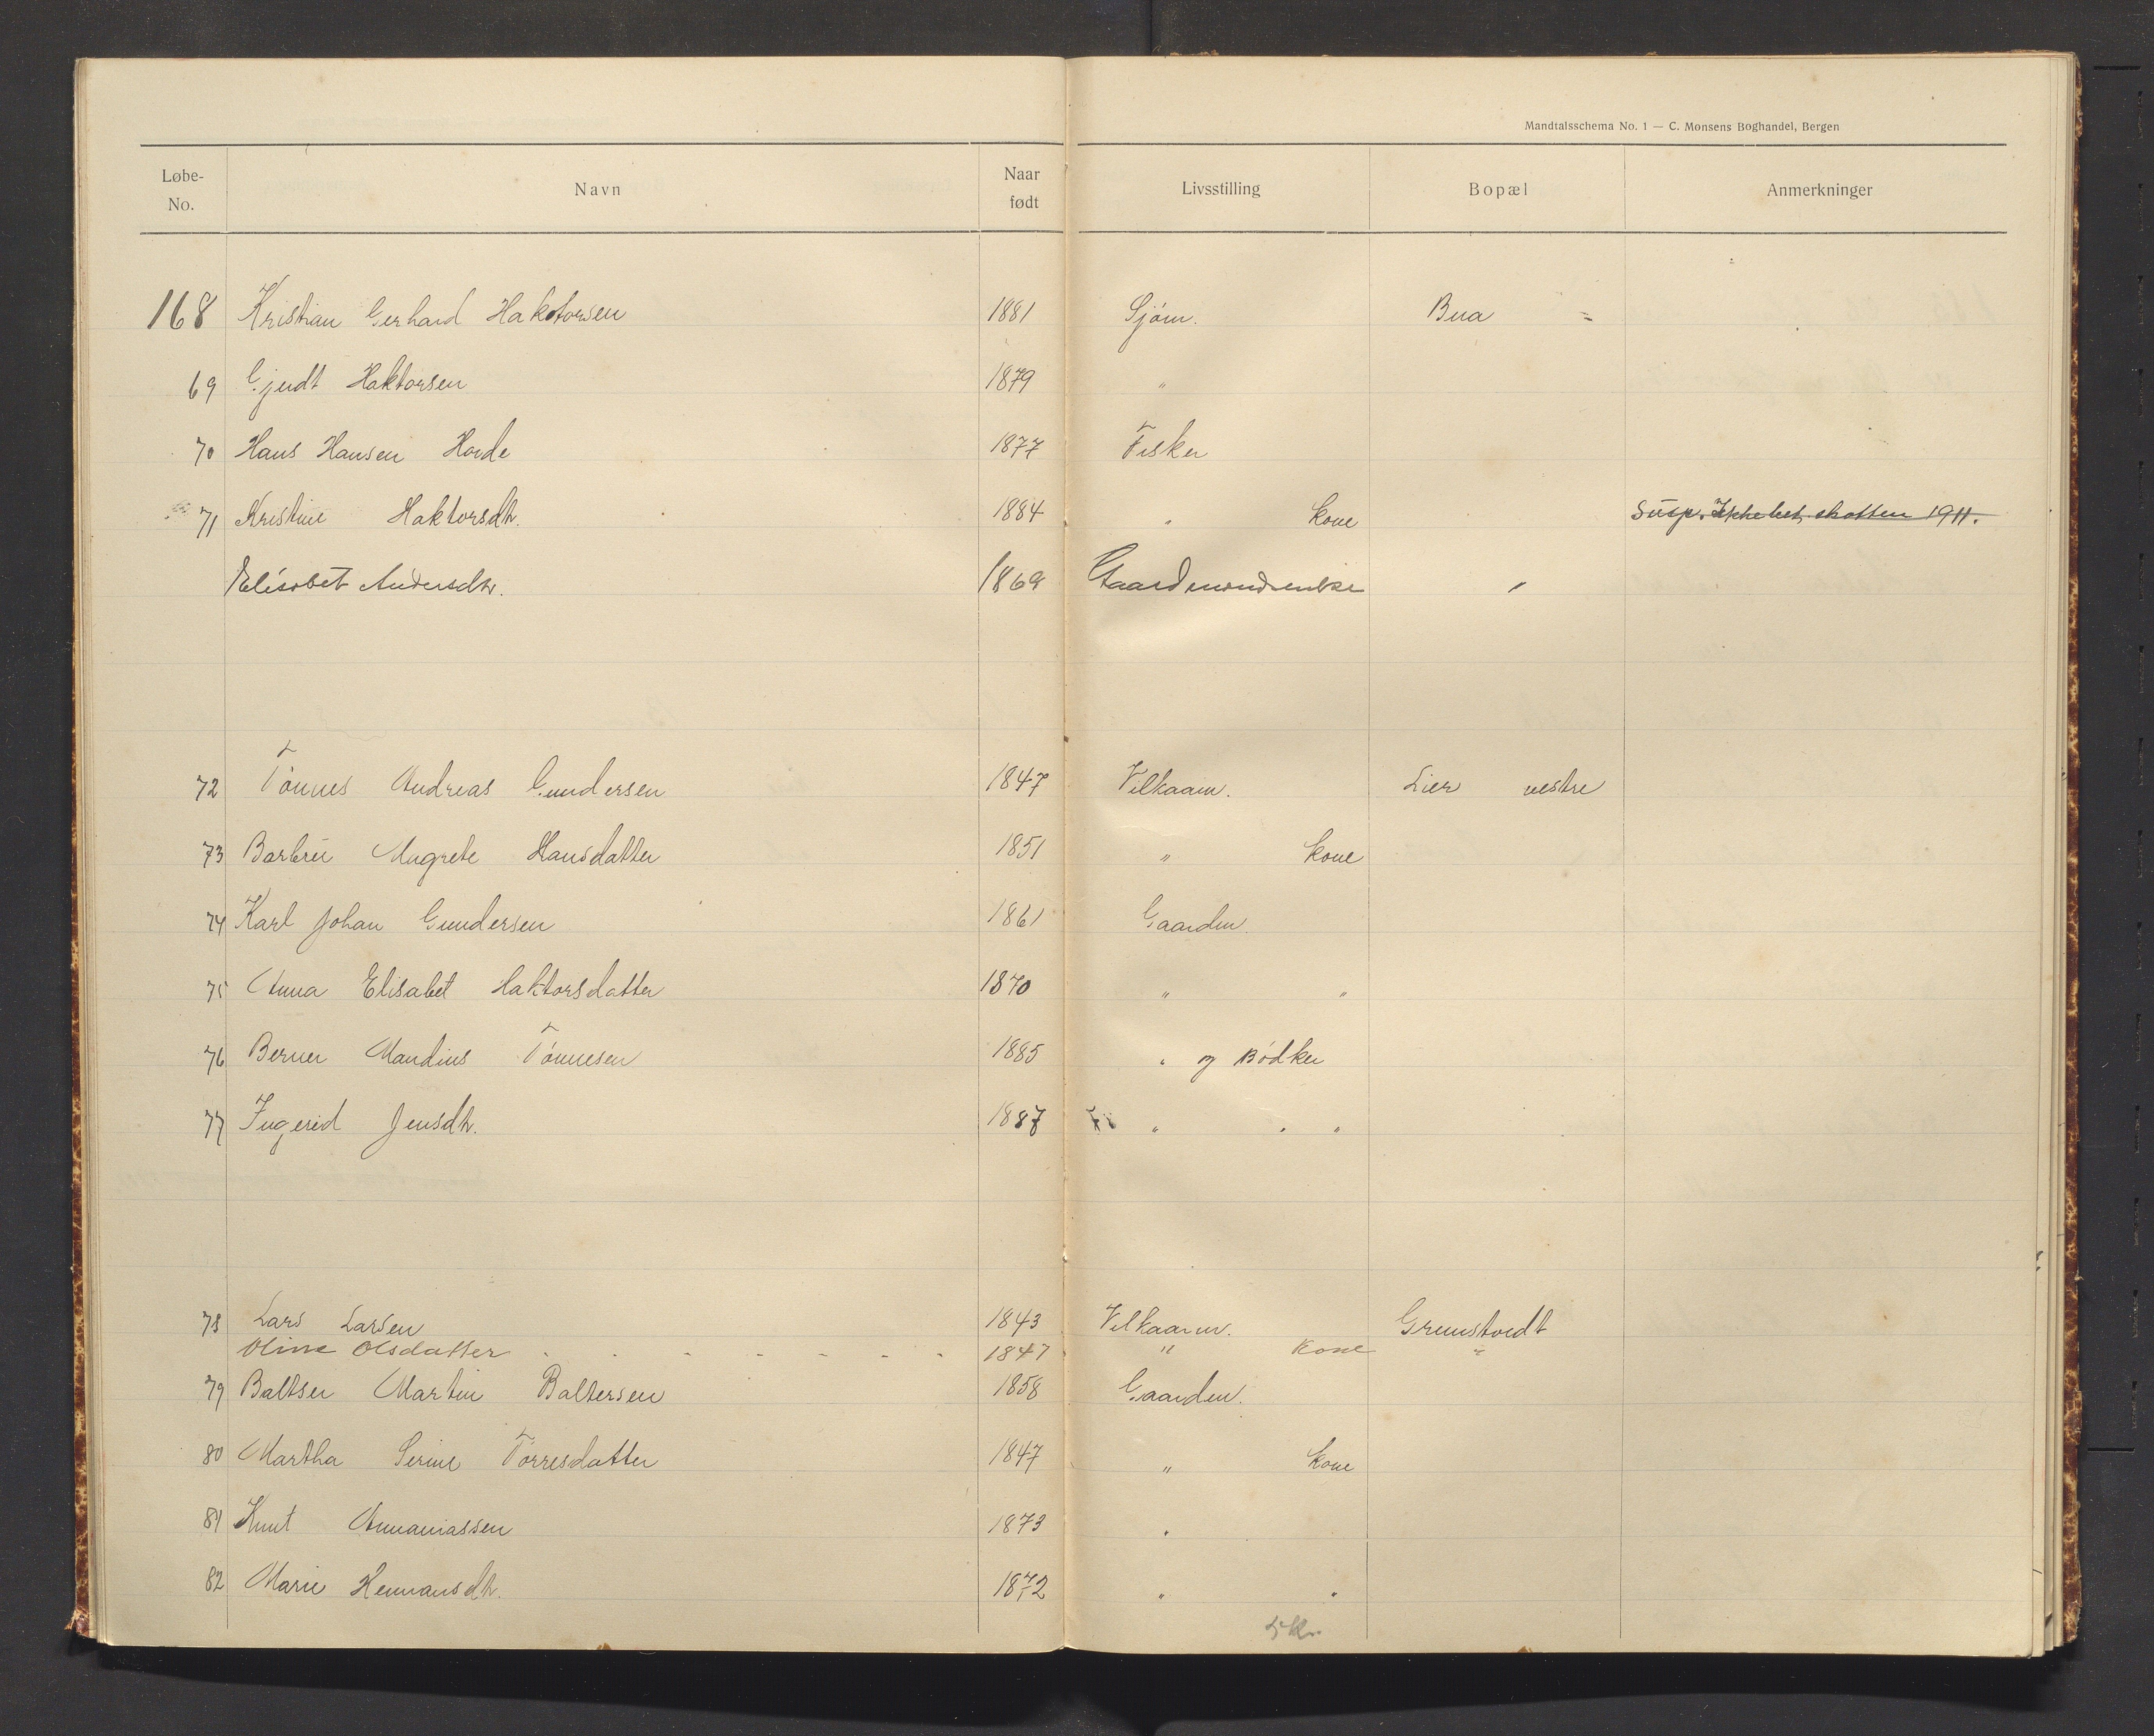 Mandtalsschema No. 1 — C. Monsens Boghandel, Bergen
Løbe-No. Navn Naar født Livsstilling Bopæl Anmerkninger
168 Kristian Gerhard Haktorsen 1881 Sjøm. Bua "
69 Gjudt Haktorsen 1879 "
70 Hans Hansen Horde 1877 Fisker
71 Kristine Haktorsdtr. 1884 " kone Susp. Ikke bet. skatten 1911.
Elisabet Andersdtr. 1869 Gaardmandsenke "
72 Tønnes Andreas Gundersen 1847 Vilkaarm. Lier vestre
73 Barbru Magrete Hansdatter 1851 " kone
74 Karl Johan Gundersen 1861 Gaardm.
75 Anna Elisabet Haktorsdatter 1870 " "
76 Berner Mandius Tønnesen 1885 " og Bødker
77 Ingerid Jensdtr. 1887 " " "
78 Lars Larsen 1843 Vilkaarm. Grimstvedt
Oline Olsdatter - - - - - - - 1847 " kone "
79 Baltser Martin Baltersen 1858 Gaardm.
80 Martha Serine Tørresdatter 1847 " kone
81 Knut Annaniassen 1873 "
82 Marie Hermansdtr. 1872 " "